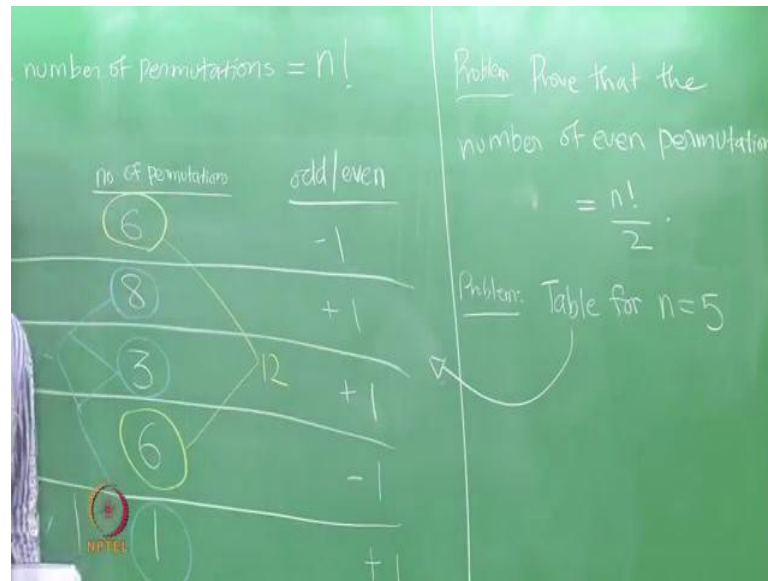 . number of permutations = n!
no of permutations odd/even
6 -1
8 +1
3 12 +1
6 -1
1 1 +1
NPTEL
Problem Prove that the
number of even permutation
= n!/2.
Problem: Table for n=5